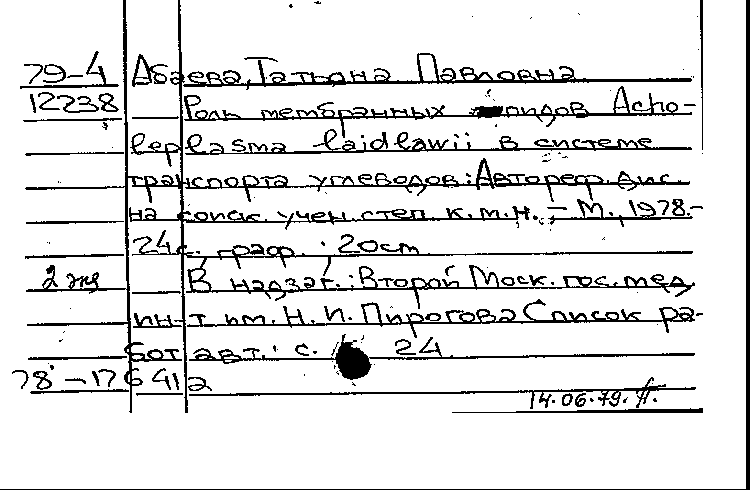 79-4 Абаева, Татьяна Павловна
12238 Роль мембранных липидов Acho-
leplasma laidlawii в системе
транспорта углеводов: Автореф. дис.
на соиск. учен. степ. к. м. н. – М., 1978.-
24 с., граф.; 20 см
2 экз В надзаг.: Второй Моск. гос. мед.
ин-т им. Н. И. Пирогова Список ра-
бот авт.: с. 24.
78-17641а
14.06.79.